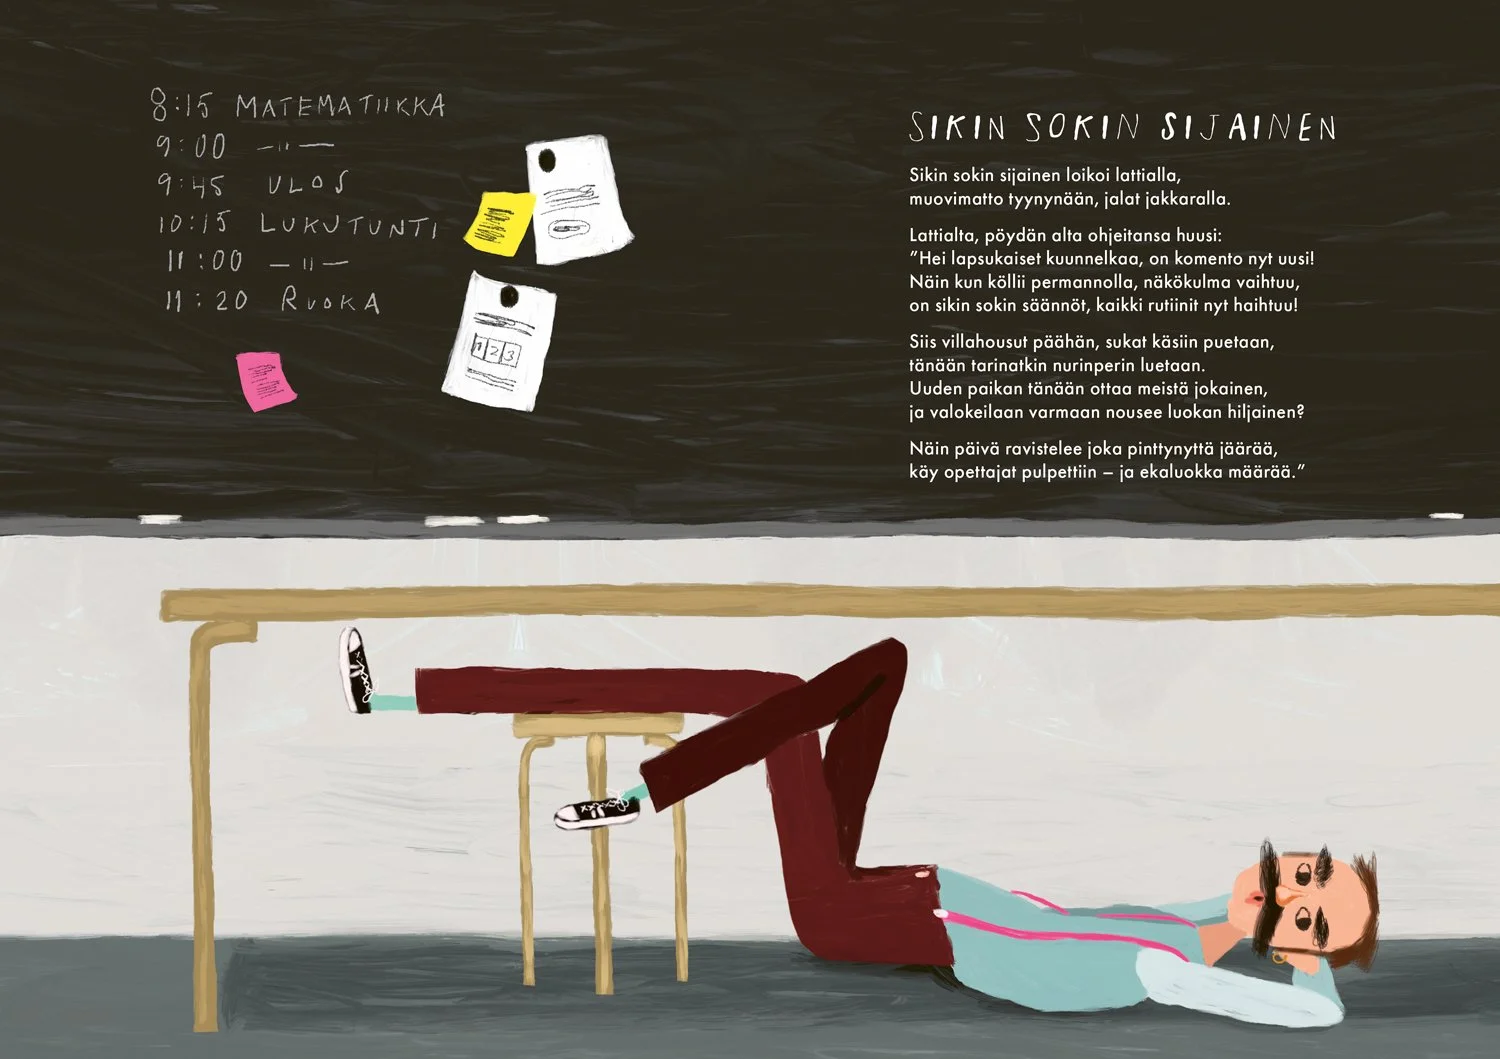 8:15 MATEMATIIKKA
9:00 —〃—
9:45 ULOS
10:15 LUKUTUNTI
11:00 —〃—
11:20 RUOKA
1 2 3
SIKIN SOKIN SIJAINEN
Sikin sokin sijainen loikoi lattialla,
muovimatto tyynynään, jalat jakkaralla.
Lattialta, pöydän alta ohjeitansa huusi:
”Hei lapsukaiset kuunnelkaa, on komento nyt uusi!
Näin kun köllii permannolla, näkökulma vaihtuu,
on sikin sokin säännöt, kaikki rutiinit nyt haihtuu!
Siis villahousut päähän, sukat käsiin puetaan,
tänään tarinatkin nurinperin luetaan.
Uuden paikan tänään ottaa meistä jokainen,
ja valokeilaan varmaan nousee luokan hiljainen?
Näin päivä ravistelee joka pinttynyttä jäärää,
käy opettajat pulpettiin – ja ekaluokka määrää.”